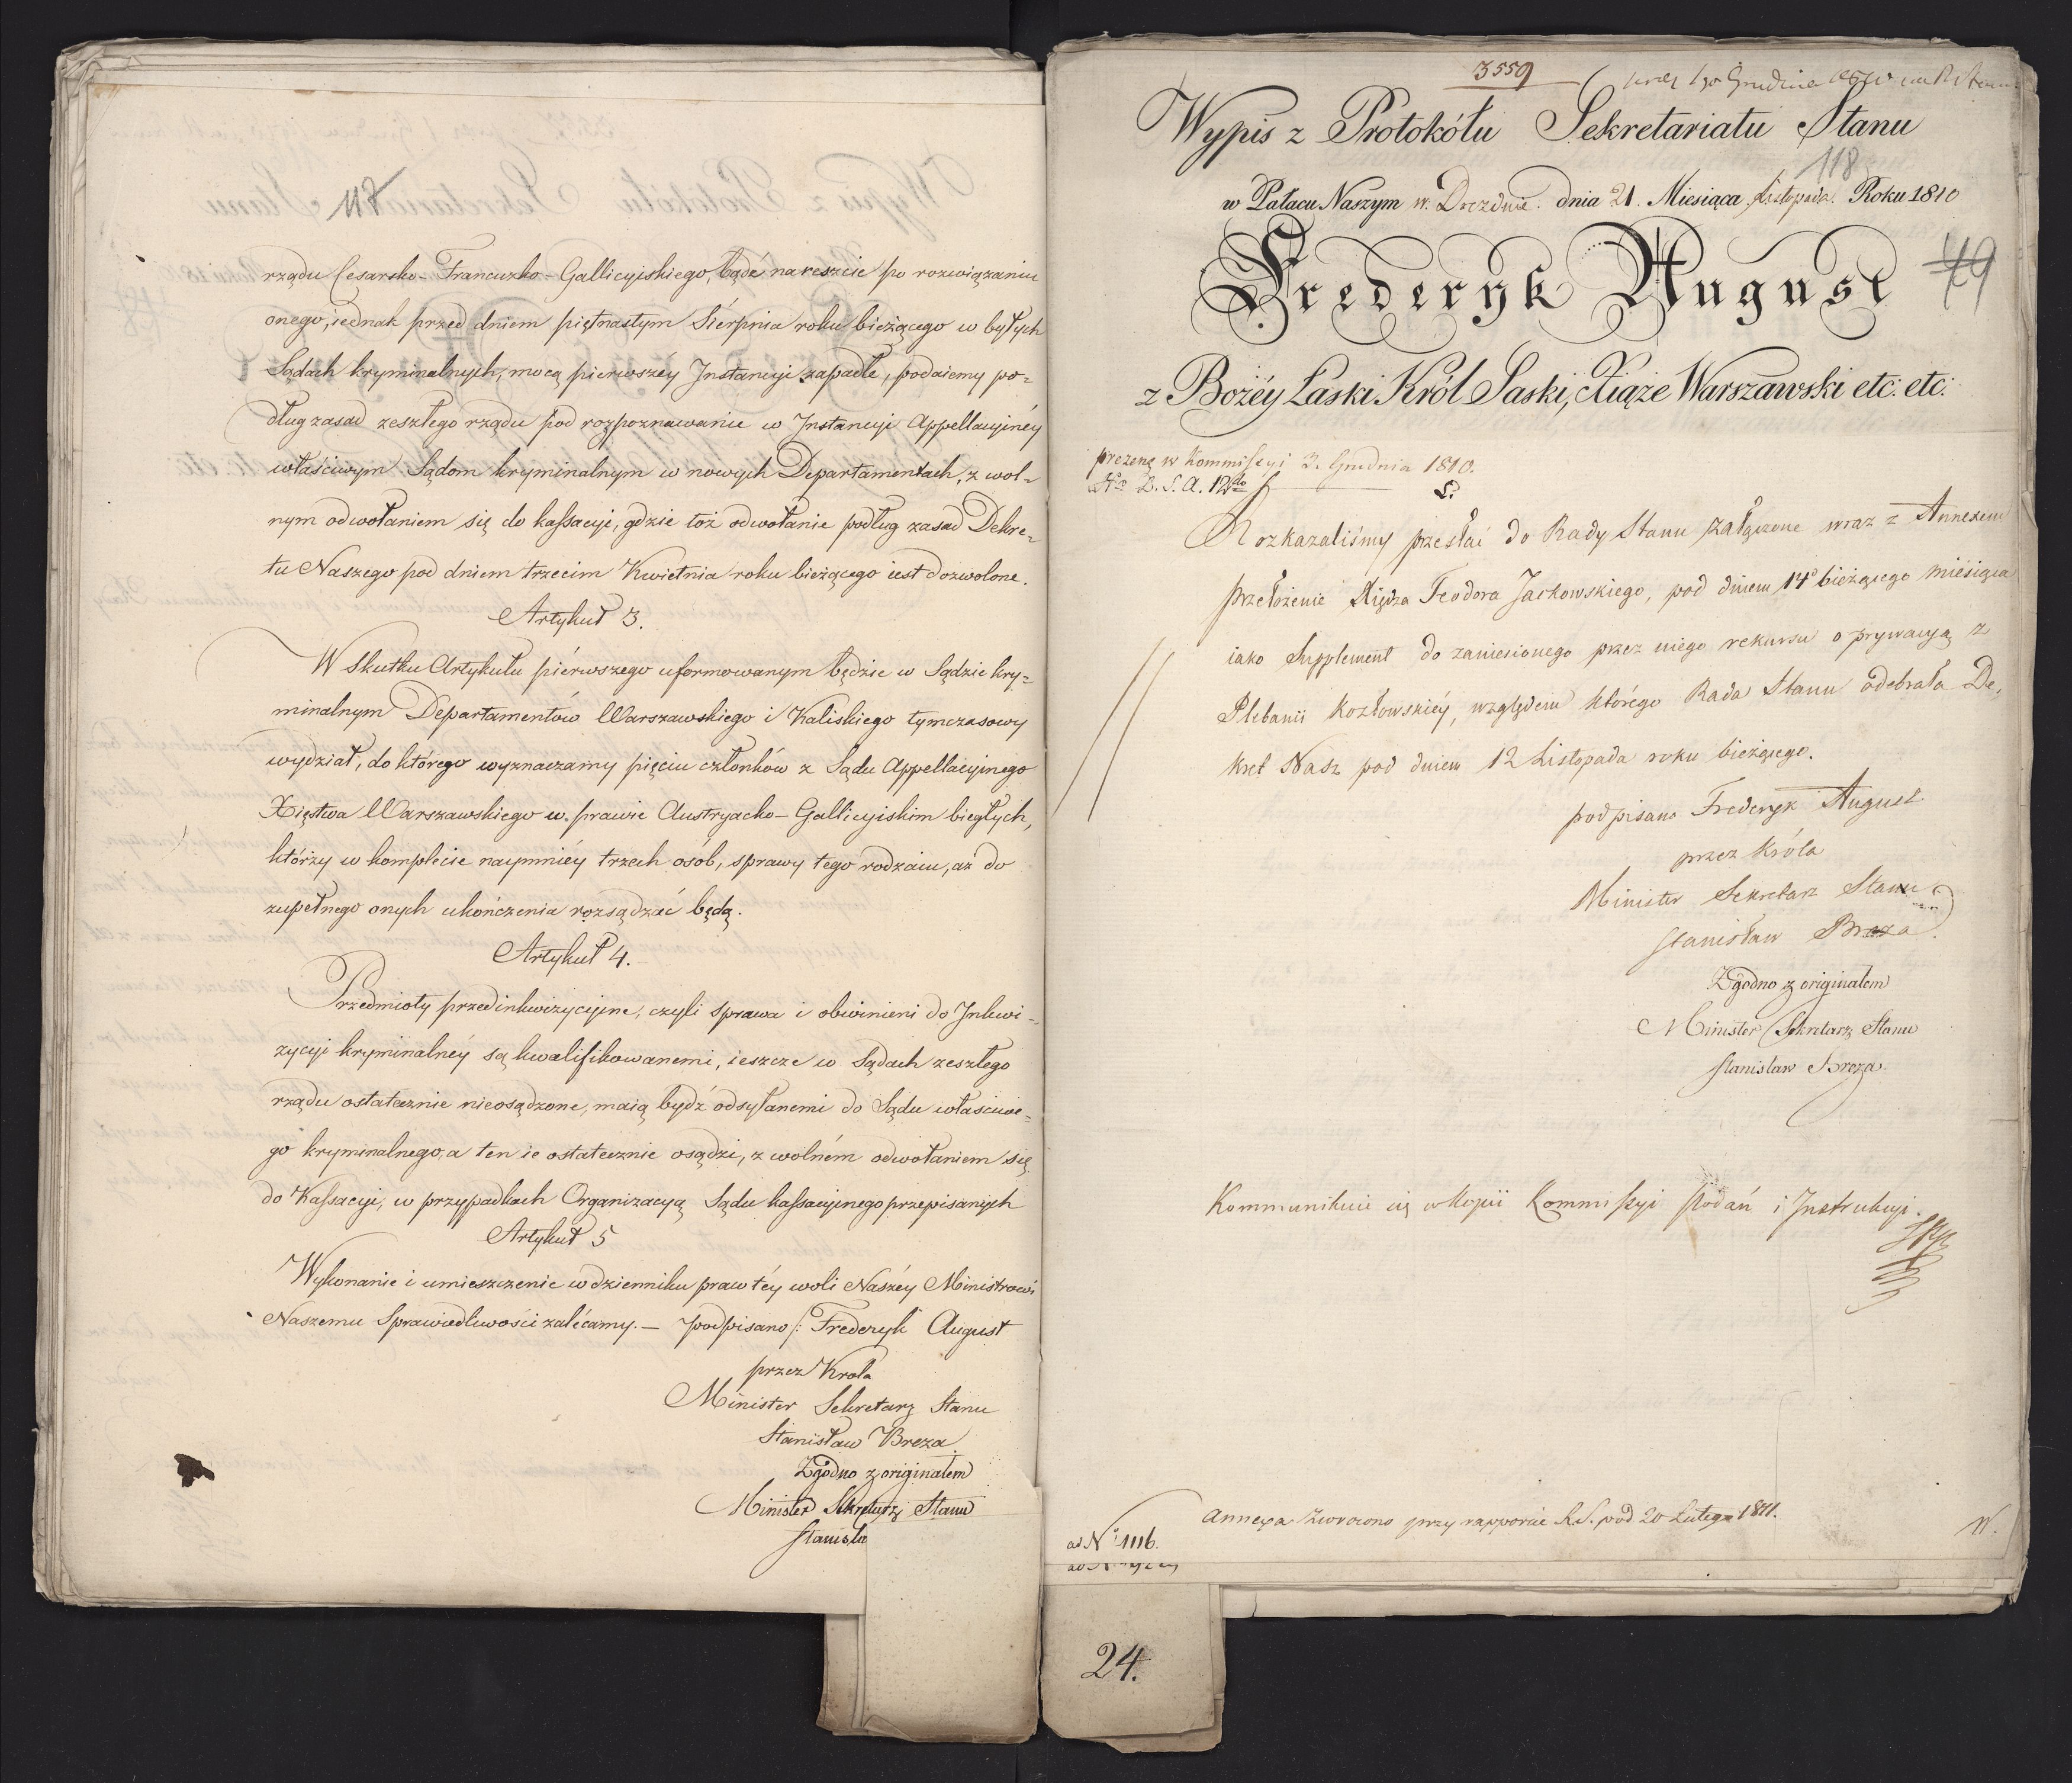 118
rządu Cesarsko-Francuzko-Gallicyiskiego, bądź nareszcie po rozwiązaniu
onego, iednak przed dniem piętnastym Sierpnia roku bieżącego w byłych
Sądach kryminalnych, mocą pierwszéy Instancyi zapadłe, podaiemy po=
dług zasad zeszłego rządu pod rozpoznawanie w Instancyi Appellacyinéy
właściwym Sądom kryminalnym w nowych Departamentach, z wol=
nym odwołaniem się do kassacyi, gdzie toż odwołanie podług zasad Dekre=
tu Naszego pod dniem trzecim Kwietnia roku bieżącego iest dozwolone.
Artykuł 3.
W Skutku Artykułu piérwszego uformowanym będzie w Sądzie kry=
minalnym Departamentów Warszawskiego i Kaliskiego tymczasowy
wydział, do którego wyznaczamy pięciu członków z Sądu Appellacyinego
Xięstwa Warszawskiego w prawie Austryacko-Gallicyiskim biegłych,
którzy w komplecie naymniéy trzech osób, sprawy tego rodzaiu, aż do
zupełnego onych ukończenia rozsądzać będą.
Artykuł 4.
Przedmioty przedinkwizycyine, czyli sprawa i obwinieni do Inkwi=
zycyi kryminalnéy są kwalifikowanemi, ieszcze w Sądach zeszłego
rządu ostatecznie nieosądzone, maią bydź odsyłanemi do Sądu właściwe=
go kryminalnego, a ten ie ostatecznie osądzi, z wolném odwołaniem się
do Kassacyi, w przypadkach Organizacyą Sądu kassacyinego przepisanych
Artykuł 5
Wykonanie i umieszczenie w dzienniku praw téy woli Naszéy Ministrowi
Naszemu Sprawiedliwości zalécamy. — podpisano /: Frederyk August
przez Krola
Minister Sekretarz Stanu
Stanisław Breza
Zgodno z originałem
Minister Sekretarz Stanu
Stanisła
3559
Wypis z Protokółu Sekretariatu Stanu
118
w Pałacu Naszym w Dreznie dnia 21. Miesiąca Listopada Roku 1810
Frederyk August
49
z Bożéy Łaski Król Saski, Xiąże Warszawski etc: etc:
prezent w Kommissyi 3. Grudnia 1810.
Rozkazaliśmy przesłać do Rady Stanu załączone wraz z Annexem
przełożenie Xiędza Teodora Jaskowskiego, pod dniem 14º bieżącego miesiąca
iako Supplement do zaniesionego przez niego rekursu o prywacyą z
Plebanii Kozłowskiéy, względem którego Rada Stanu odebrała De=
kret Nasz pod dniem 12 Listopada roku bieżącego.
podpisano Frederyk August
przez Króla
Minister Sekretarz Stanu
Stanisław Breza
Zgodno z originałem
Minister Sekretarz Stanu
Stanisław Breza
Kommunikuie się w kopii Kommissyi Podań i Instrukcyi.
Annexa zwrocono przy rapporcie R.S. pod 20 Lutego 1811.
ad Nº 1116.
24.